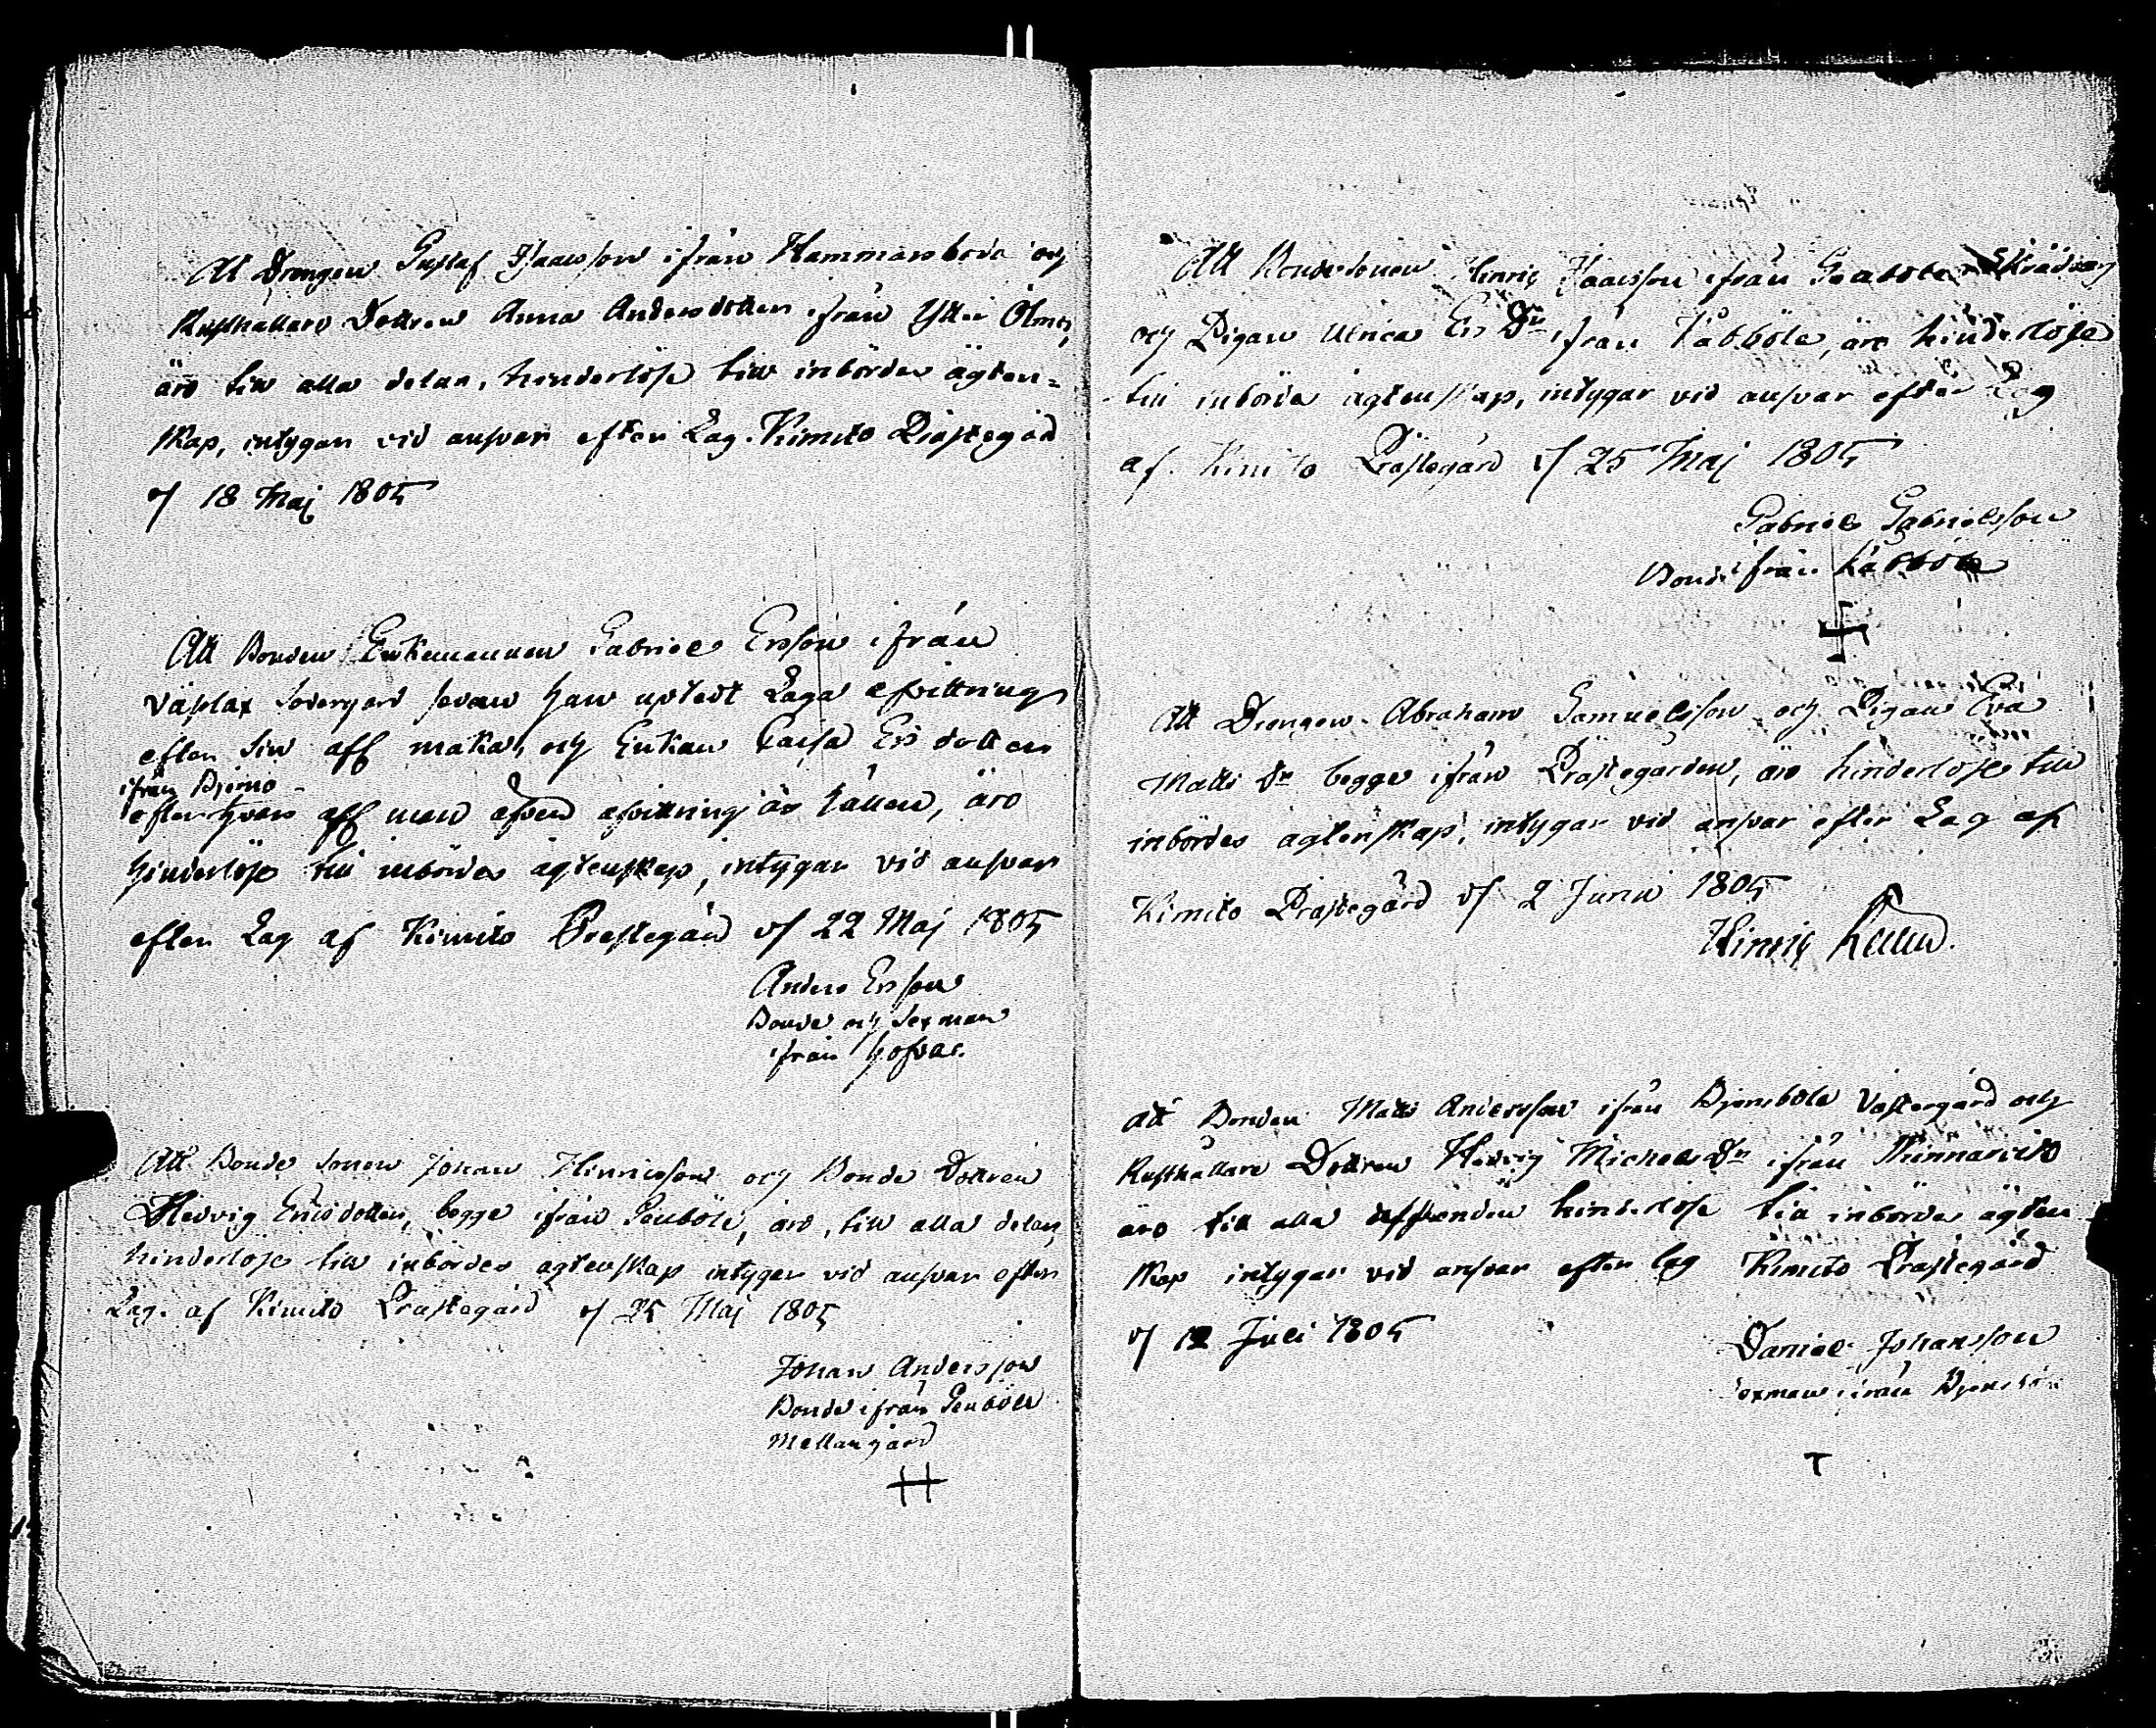 Att Drengen Gustaf Isaacsson ifrån Hammarsboda och
Rusthållare Dottren Anna Andersdotter ifrån Ytter Ölmos,
äro till alla delar, hinderlöse till inbördes ägten-
skap, intygar vid answar efter Lag. Kimito Prästegård
d 18 Maj 1805
Att Bonden Enkemannen Gabriel Ersson ifrån
Västlax Södergård sedan han uptedt Laga afvittring
efter sin afl maka, och Enkan Caisa Ers dotter
ifrån Björnö
efter hvars afl man äfven afvittring är hållen, äro
hinderlöse till inbördes ägtenskap, intygar vid answar
efter Lag af Kimito Prestegård d 22 Maj 1805
Anders Ersson
Bonde och Sexman
ifrån Hofvar.
Att Bonde Sonen Johan Hinricsson och Bonde Dottren
Hedvig Ericsdotter, begge ifrån Penböle, äro, till alla delar,
hinderlöse till inbördes ägtenskap intygar vid answar efter
Lag. af Kimito Prästegård d 25 Maj 1805
Johan Andersson
Bonde ifrån Penböle
Mellangård
Att Bondesonen Hinric Isaacsson ifrån Skrädvag
och Pigan Ulrica Ers Dr ifrån Kåbböle, äro hinderlöse
till inbörds ägtenskap, intygar vid answar efter Lag
af Kimito Prästegård d 25 Maj 1805
Gabriel Gabrielsson
Bonde ifrån Kåbböle
Att Drengen Abraham Samuelsson och Pigan Eva
Matts Dr begge ifrån Prästegården, äro hinderlöse till
inbördes ägtenskap, intygar vid answar efter Lag af
Kimito Prästegård d 2 Junii 1805
Hinric
Att Bonden Matts Andersson ifrån Björnböle Västergård och
Rusthållare Dottren Hedvig Michels Dr ifrån
äro till alla hinderlöse till inbördes ägten
skap intygar vid answar efter lag Kimito Prästegård
d 12 Juli 1805
Daniel Johansson
sexman ifrån